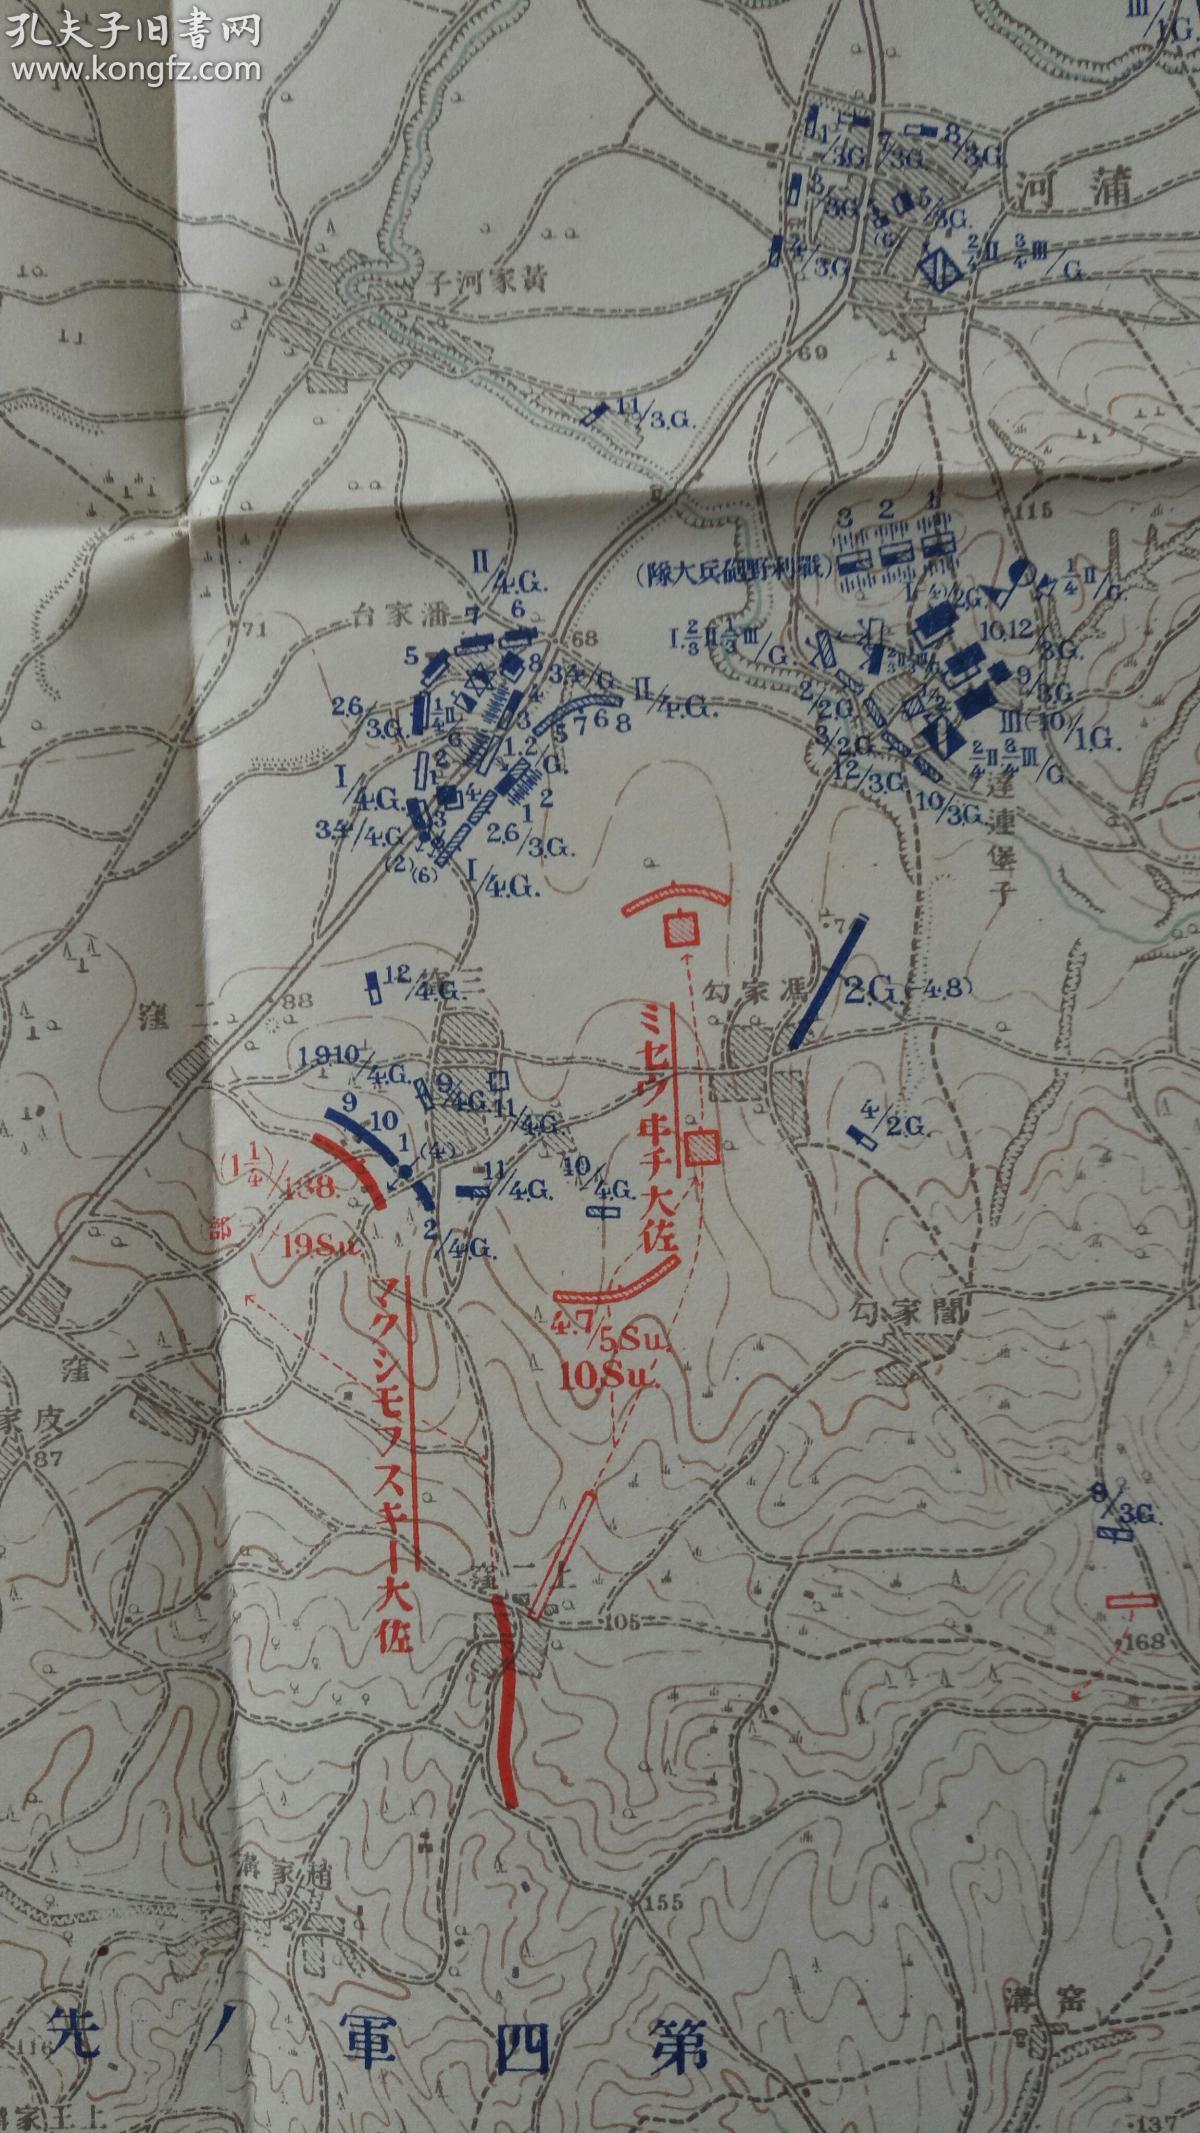 孔夫子旧書网
www.kongfz.com
Ⅲ/1G.
1/3.G.
7/3.G.
8/3.G.
3/3.G.
5/3.G.
(6)
2/4Ⅱ 3/4Ⅲ/G.
蒲河
黃家河子
69
11/3.G.
115
3
2
1
(戰利野砲兵大隊)
Ⅱ/4.G.
潘家台
71
68
7
6
5
8
3.4/G.
Ⅱ/4.G.
5 7 6 8
2.6/3.G.
1/4Ⅱ
Ⅰ/4.G.
3.4/4.G.
(2)
(6)
1.2/G.
2.6/3.G.
Ⅰ/4.G.
Ⅰ.2/3Ⅱ.1/3Ⅲ/G.
1/4Ⅱ/G.
10,12/3.G.
9/3.G.
Ⅲ(-10)/1.G.
2/4Ⅱ3/4Ⅲ/G
2/2.G.
3/2.G.
12/3.G.
10/3.G.
達連堡子
2.G(-4.8)
馮家勾
4/2.G.
12/4.G.
三窪
二窪
88
1.9.10/4.G.
9/4.G.
11/4.G.
9
10
1
(4)
11/4.G.
10/4.G.
2/4.G.
(1 1/4)/138.
一部/19.Su.
ミセウ串チ大佐
マクシモフスキー大佐
4.7/5Su.
10.Su.
闇家勾
窪
皮家
87
9/3.G.
168
上二窪
105
155
趙家溝
窑溝
第四軍ノ先
116
上王家溝
137